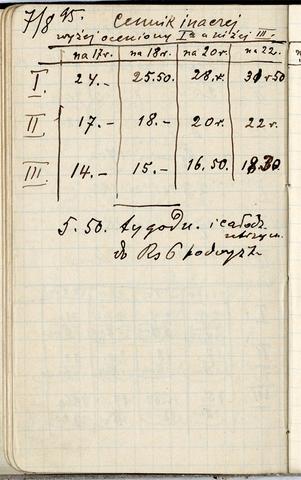 7/8 95. Cennik inaczej
wyżej oceniony Ia a niżej III.
na 17r. na 18r. na 20r. na 22.
I. 24.- 25.50. 28.r. 31 r 50
II. 17.- 18.- 20r. 22r.
III. 14.- 15.- 16.50. 18.30
5.50. tygodn. i całodz.
do Rs 6 podwyżk.